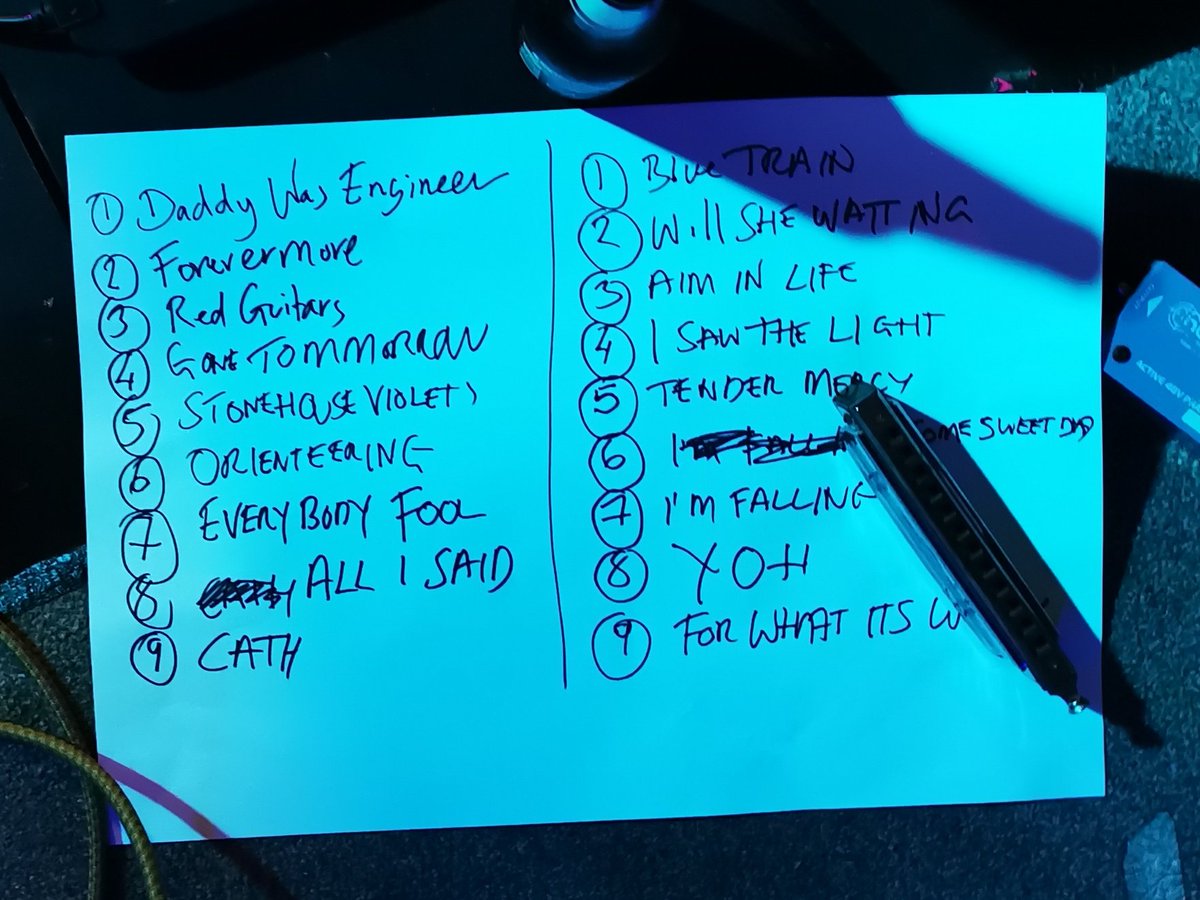 ① Daddy Was Engineer
② Forevermore
③ Red Guitars
④ Gone TOMMORROW
⑤ STONEHOUSE VIOLETS
⑥ ORIENTEERING
⑦ EVERYBODY FOOL
⑧ ALL I SAID
⑨ CATH
① Blue TRAIN
② Will SHE WAITING
③ AIM IN LIFE
④ I SAW THE LIGHT
⑤ TENDER MERCY
⑥ OME SWEET DAD
⑦ I'M FALLING
⑧ YOH
⑨ FOR WHAT ITS W
ACTIVE 48V